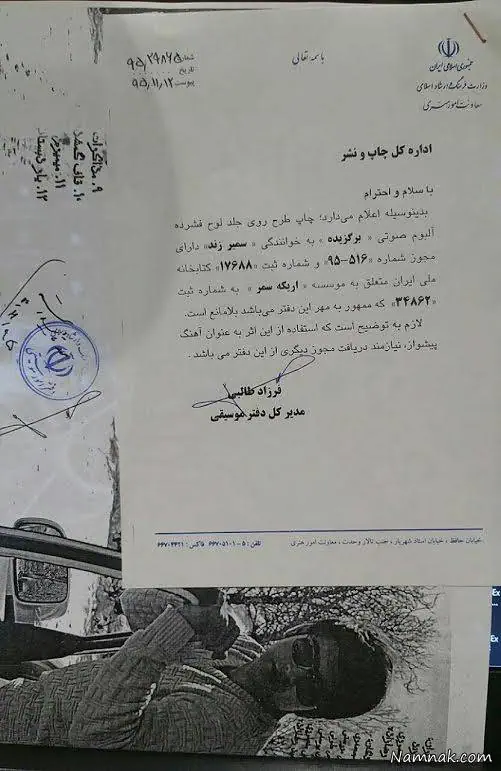 باسمه تعالی
جمهوری اسلامی ایران
وزارت فرهنگ و ارشاد اسلامی
معاونت امور هنری
شماره
تاریخ ۹۵،۱۱،۱۲
پیوست
اداره کل چاپ و نشر
با سلام و احترام
بدینوسیله اعلام می‌دارد؛ چاپ طرح روی جلد لوح فشرده
آلبوم صوتی « برگزیده » به خوانندگی « سمیر زند» دارای
مجوز شماره «۵۱۶-۹۵» و شماره ثبت «۱۷۶۸۸» کتابخانه
ملی ایران متعلق به موسسه « اریکه سمر » به شماره ثبت
«۳۴۸۶۲» که ممهور به مهر این دفتر می‌باشد بلامانع است.
لازم به توضیح است که استفاده از این اثر به عنوان آهنگ
پیشواز، نیازمند دریافت مجوز دیگری از این دفتر می باشد .
فرزاد طالبی
مدیر کل دفتر موسیقی
خیابان حافظ ، خیابان استاد شهریار ، جنب تالار وحدت ، معاونت امور هنری
تلفن : ۵-۶۶۷۰۵۱۰۱ فاکس :
۱۰.
۱۱.
۱۲.
Ex
Ex
Namnak.com